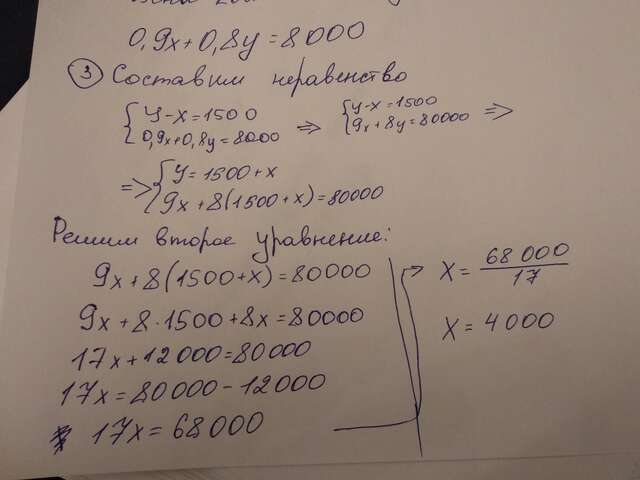 0,9x+0,8y=8000
③ Составим неравенство
{y-x=1500
0,9x+0,8y=8000 => {y-x=1500
9x+8y=80000 =>
=> {y=1500+x
9x+8(1500+x)=80000
Решим второе уравнение:
9x+8(1500+x)=80000
9x+8·1500+8x=80000
17x+12000=80000
17x=80000-12000
17x=68000
x=68 000/17
x=4000